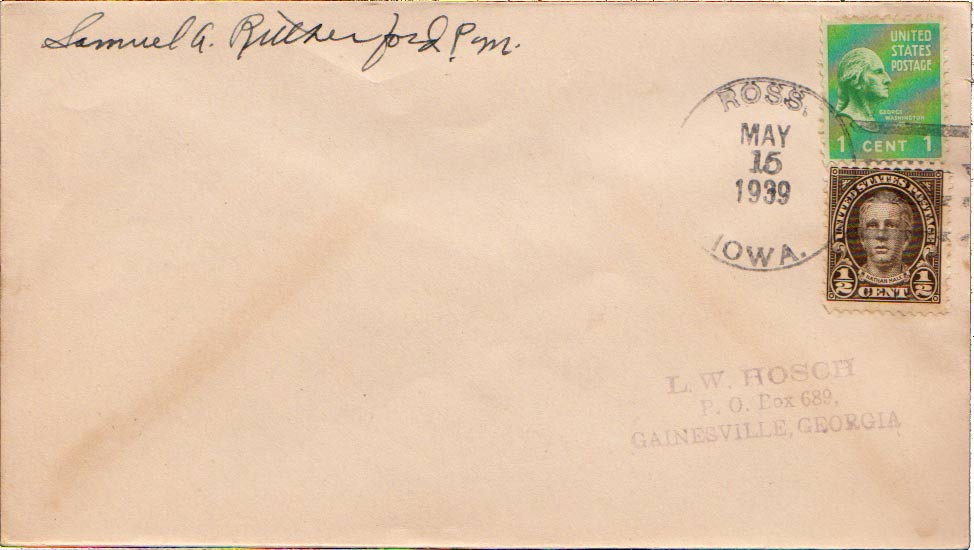 Samuel A. Rutherford P.M.
UNITED
STATES
POSTAGE
GEORGE
WASHINGTON
1 CENT 1
ROSS,
MAY
15
1939
IOWA.
UNITED STATES POSTAGE
NATHAN HALE
½ CENT ½
L. W. HOSCH
P. O. Box 689,
GAINESVILLE, GEORGIA